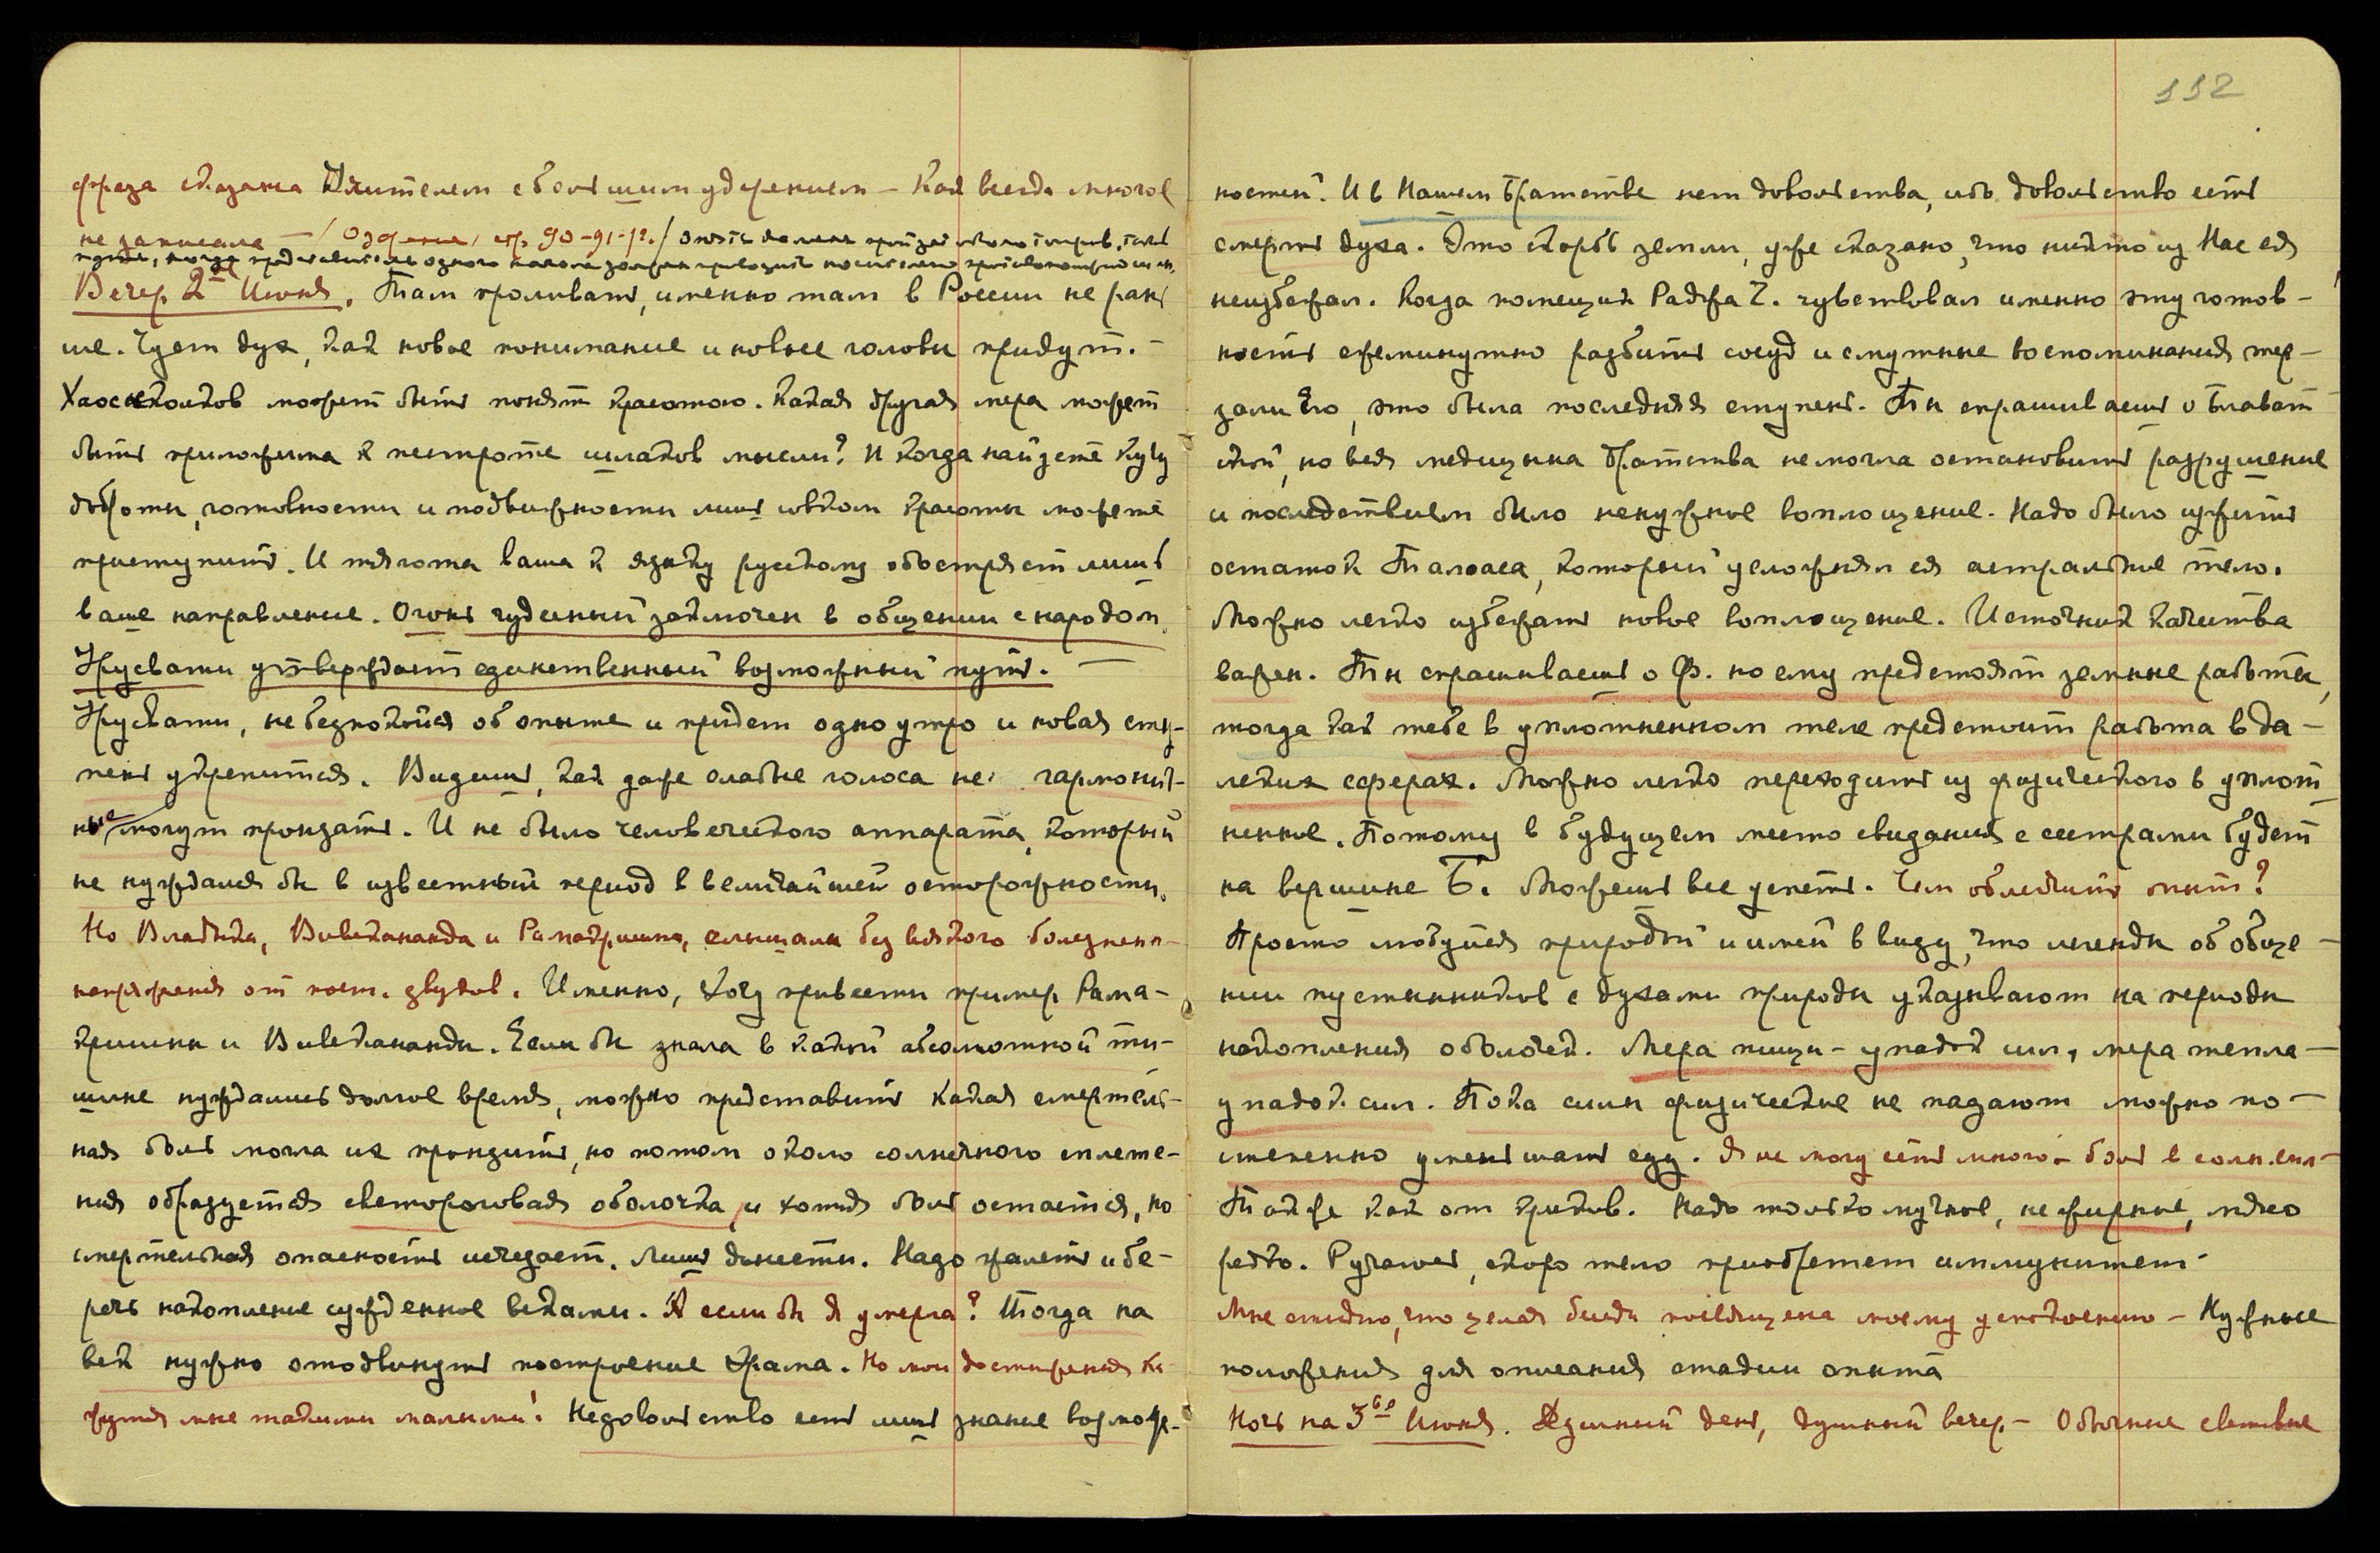 фраза сказана Учителем с большим ударением – Как всегда многое
не записала – / Озарение, стр. 90-91-12. / Опять должна пройти около тигров, так
идти, когда представитель одного начала должен приводить носителю противоположных
Вечер 2го Июня. Там проливать, именно там в России не рань
ше. Чует дух, как новое понимание и новые головы придут. –
Хаос осколков может быть понят красотою. Какая другая мера может
быть приложима к пестроте шлаков мысли? И когда найдете кучу
доброты, готовности и подвижности лишь совком красоты можете
приступить. И тягота ваша к языку русскому обостряет лишь
ваше направление. Огонь чудесный заключен в общении с народом.
Урусвати утверждает единственный возможный путь. –
Урусвати, не беспокойся об опыте и придет одно утро и новая сту-
пень укрепится. Видишь, как даже слабые голоса не гармонич-
ные могут пронзать. И не было человеческого аппарата, который
не нуждался бы в известный период в величайшей осторожности.
Но Владыка, Вивекананда и Рамакришна, слышали без всякого болезнен-
напряжения от пост. звуков. Именно, хочу привести пример Рама-
кришны и Вивекананды. Если бы знала в какой абсолютной ти-
шине нуждались долгое время, можно представить какая смертель-
ная боль могла их пронзить, но потом около солнечного сплете-
ния образуется светороговая оболочка, и хотя боль остается, но
смертельная опасность исчезает. Лишь донести. Надо жалеть и бе-
речь накопление сужденное веками. А если бы я умерла? Тогда на
век нужно отодвинуть построение Храма. Но мои достижения ка-
жутся мне такими малыми! Недовольство есть лишь знание возмож-
112
ностей. И в Нашем Братстве нет довольства, ибо довольство есть
смерть духа. Это скорбь земли, уже сказано, что никто из Нас ея
неизбежал. Когда помещик Раджа Ч. чувствовал именно эту готов-
ность ежеминутно разбить сосуд и смутные воспоминания тер-
зали Его, это была последняя ступень. Ты спрашиваешь о Блават
ской, но вся медицына Братства не могла остановить разрушение
и последствием было ненужное воплощение. Надо было изжить
остаток Таласа, который усложнял ея астральное тело.
Можно легко избежать новое воплощение. Источник качества
важен. Ты спрашиваешь о Ф. но ему предстоят земные работы,
тогда как тебе в уплотненном теле предстоит работа в да-
леких сферах. Можно легко переходить из физического в уплот
ненное. Потому в будущем место свидания с сестрами будет
на вершине Б. Можешь все успеть. Чем облегчить опыт?
Просто любуйся природой и имей в виду, что легенды об обще-
нии пустынников с духами природы указывают на периоды
накопления оболочек. Мера пищи – упадок сил, мера тепла –
упадок сил. Пока силы физические не падают можно по-
степенно уменьшать еду. Я не могу есть много – боль в солн. спл-
Также как от криков. Надо только мучное, не жирное, мясо
редко. Ручаюсь, скоро тело приобретет иммунитет –
Мне стыдно, что целая беседа посвящена моему успокоению – Нужные
положения для описания стадии опыта
Ночь на 3ье Июня. Душный день, душный вечер. – Обычные световые